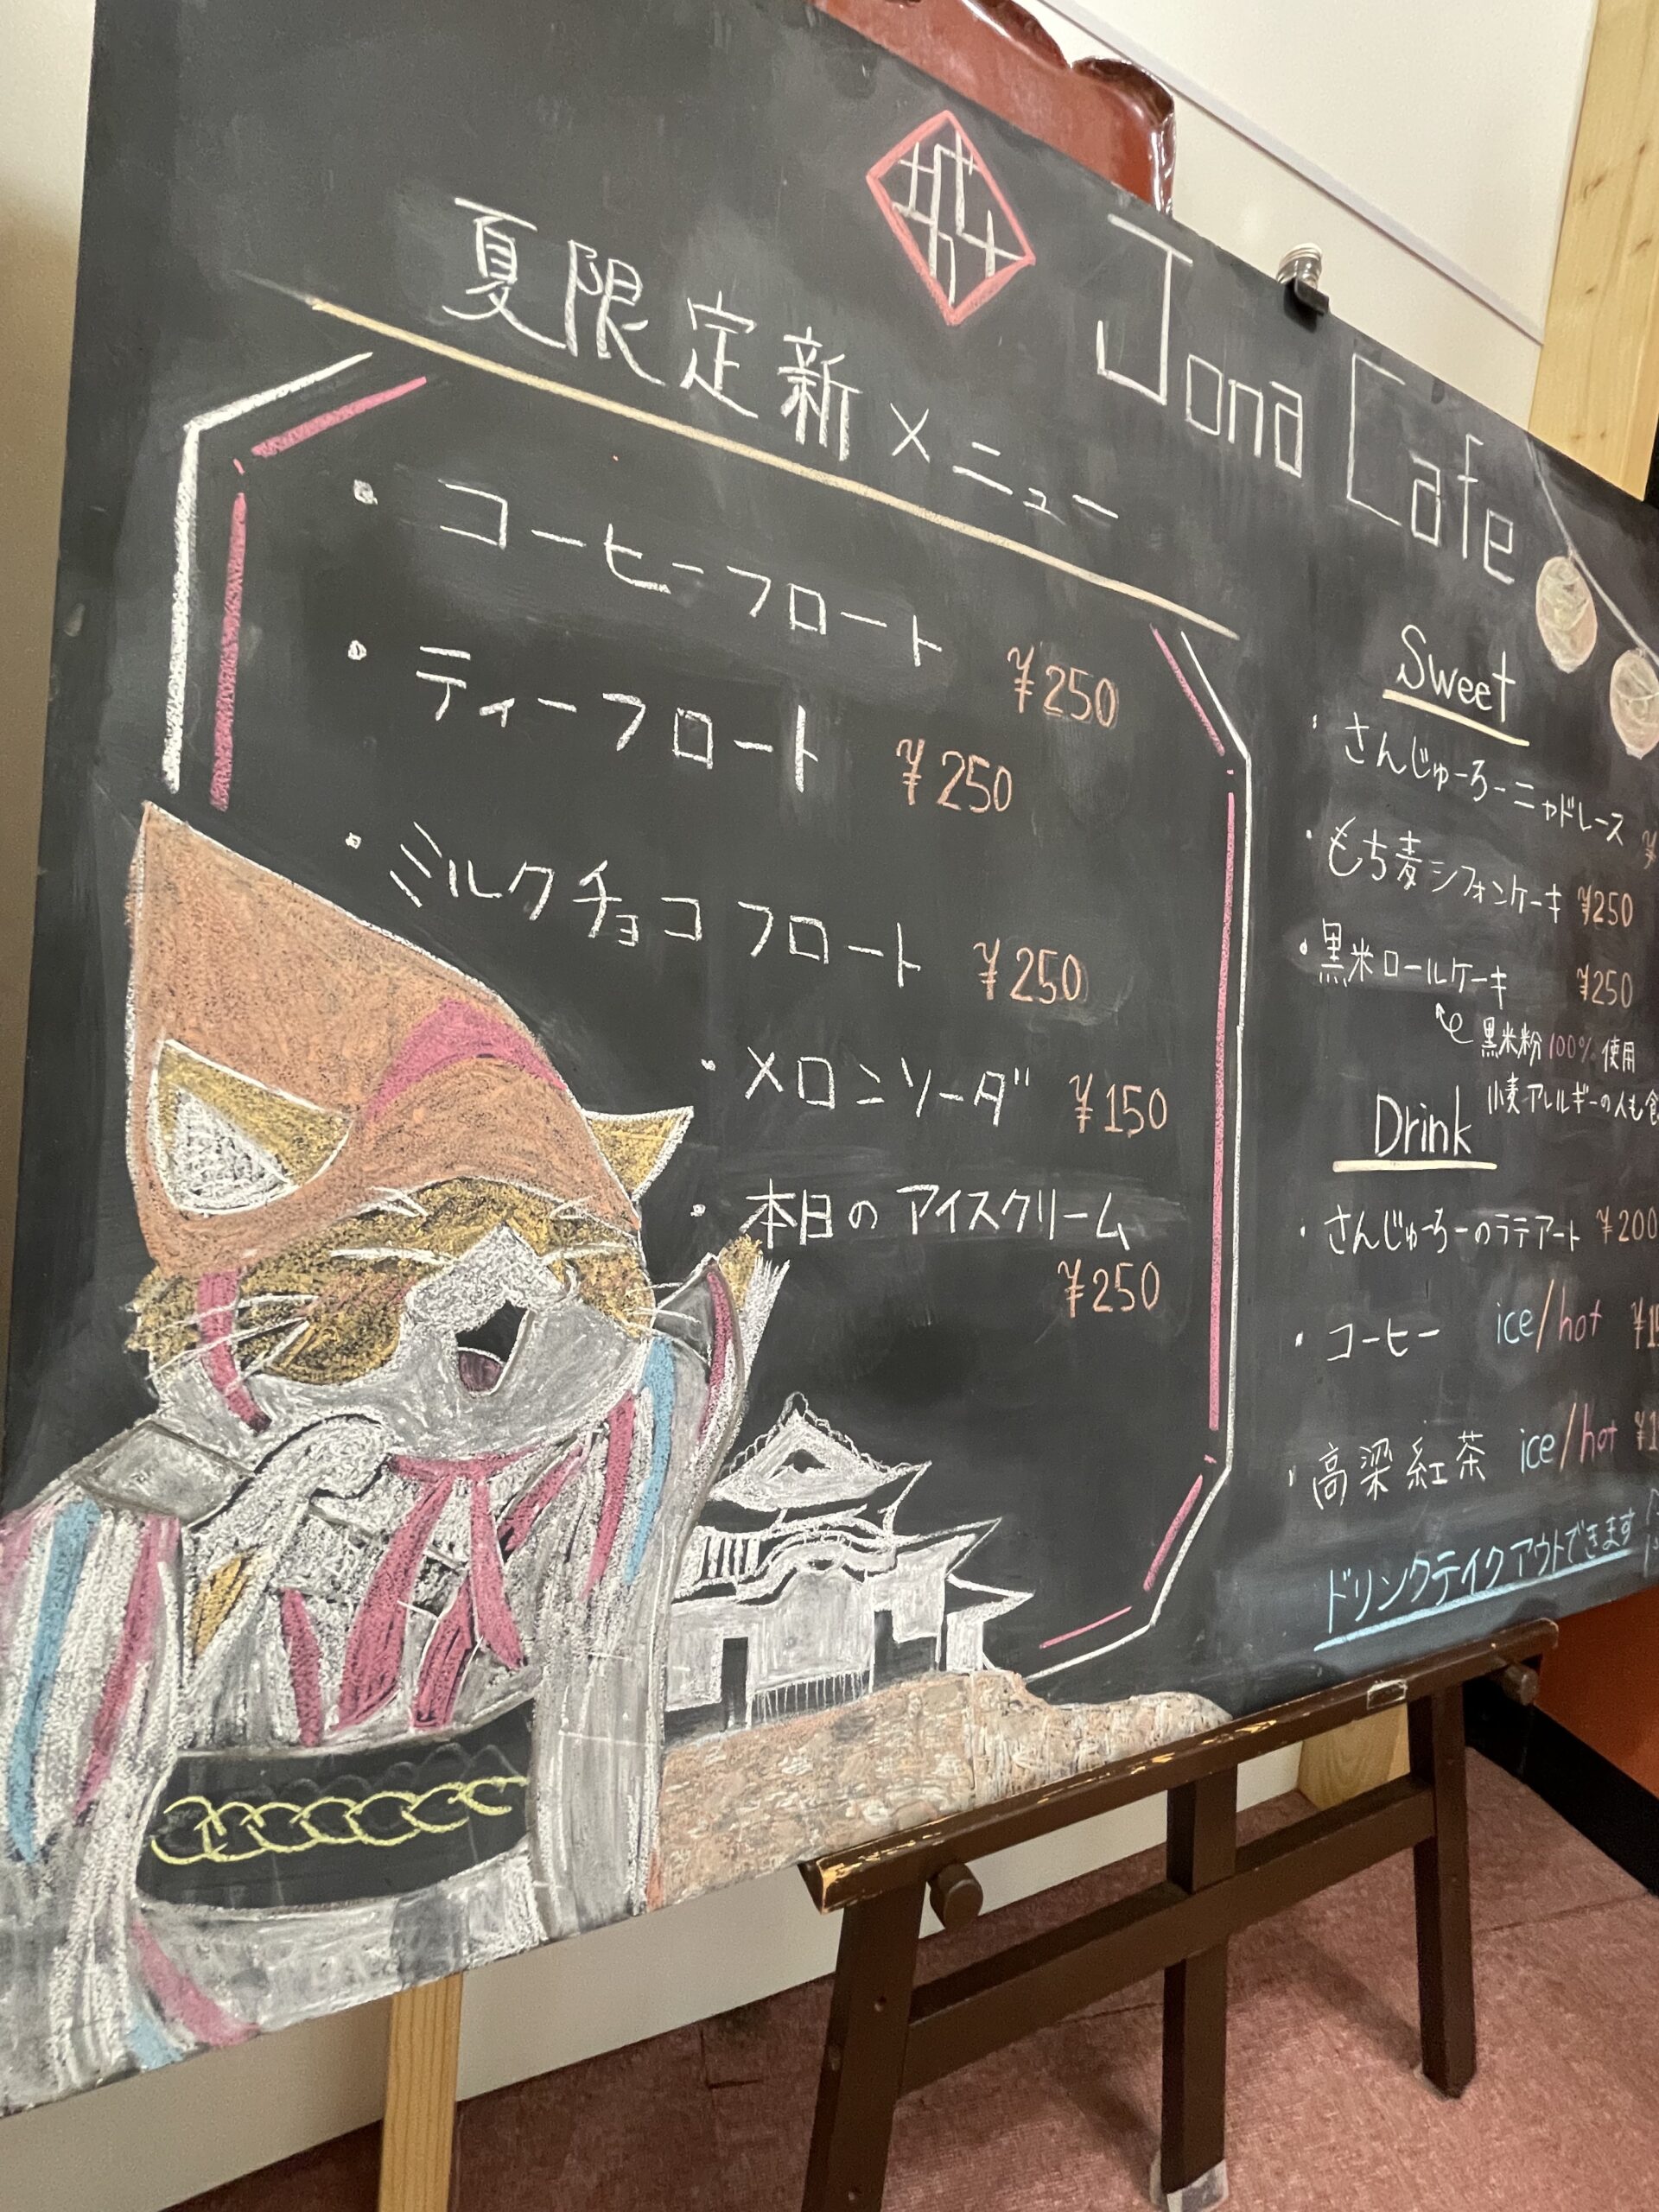 城 Jona Cafe
夏限定新メニュー
・コーヒーフロート ¥250
・ティーフロート ¥250
・ミルクチョコフロート ¥250
・メロンソーダ ¥150
・本日のアイスクリーム
¥250
Sweet
・さんじゅーろーニャドレース ¥
・もち麦シフォンケーキ ¥250
・黒米ロールケーキ ¥250
黒米粉100%使用
小麦アレルギーの人も食
Drink
・さんじゅーろーのラテアート ¥200
・コーヒー ice/hot ¥1
・高梁紅茶 ice/hot ¥1
ドリンクテイクアウトできます